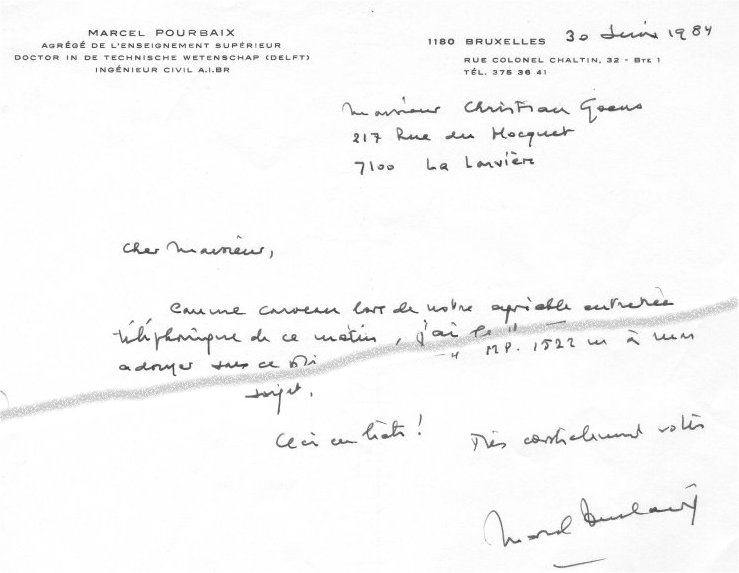 MARCEL POURBAIX
AGRÉGÉ DE L'ENSEIGNEMENT SUPÉRIEUR
DOCTOR IN DE TECHNISCHE WETENSCHAP (DELFT)
INGÉNIEUR CIVIL A.I.BR
1180 BRUXELLES 30 Juin 1984
RUE COLONEL CHALTIN, 32 - BTE 1
TÉL. 375 36 41
Monsieur Christian Goens
217 Rue du Hocquet
7100 La Louvière
Cher Monsieur,
Comme convenu lors de notre agréable entretien
téléphonique de ce matin, j'ai le
MP. 1522
sujet.
Ceci en hâte! Très cordialement vôtre
Marcel Pourbaix